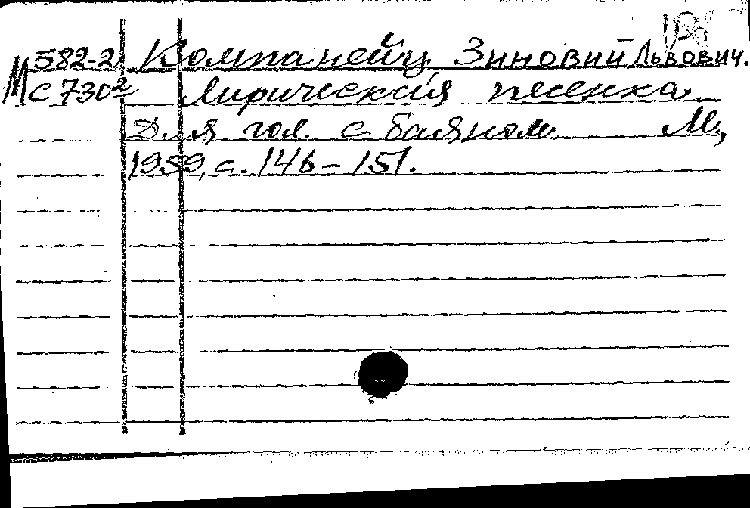 М 582-2 Компанейц Зиновий Львович.
С 730² Лирическая песенка
Для гол. с баяном М.,
1959, с. 146-151.